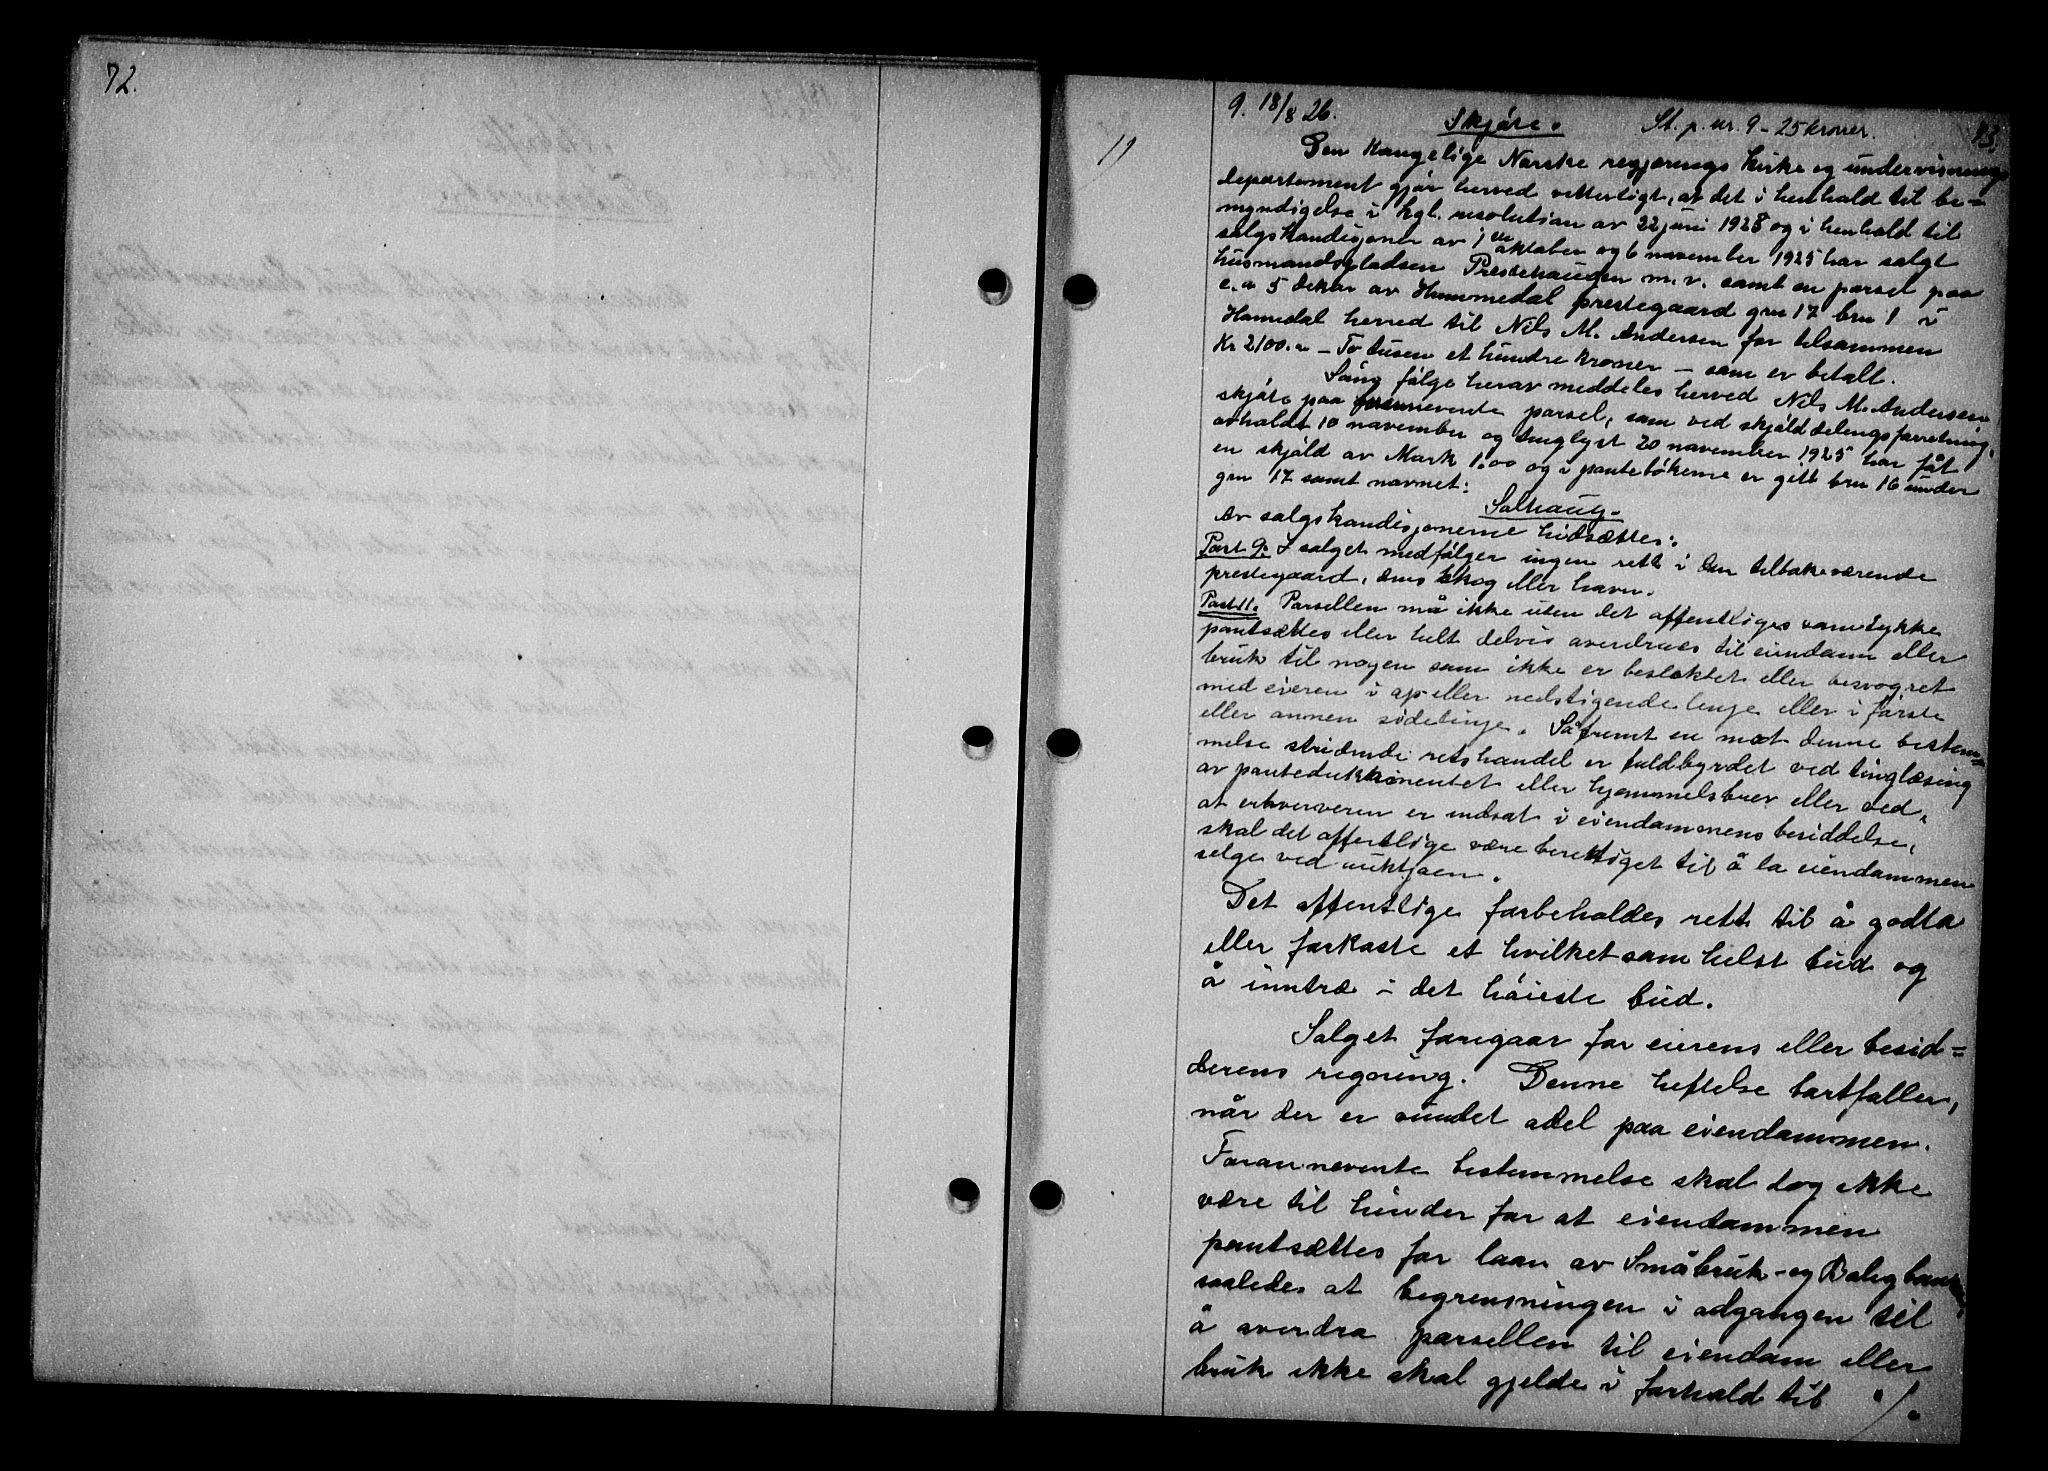 72.
9. 18/8 26. Skjøte. St. p. nr. 9 - 25 kroner. 73.
11
Den Kongelige Norske regjerings Kirke og undervisnings
departement gjør herved vitterligt, at det i henhold til be-
myndigelse i kgl. resolution av 22 juni 1928 og i henhold til
salgskondisjoner av 1ste oktober og 6 november 1925 har solgt
husmandspladsen Prestehaugen m.v. samt en parsel paa
c.a 5 dekar av Hommedal prestegaard gnr 17 bnr 1 i
Homedal herred til Nils M. Andersen for tilsammen
Kr 2100.- - To tusen et hundre kroner - som er betalt.
I følge herav meddeles herved Nils M. Andersen
skjøte paa foran nevente parsel, som ved skjølddelingsforretning,
avholdt 10 november og tinglyst 20 november 1925 har fåt
en skjøld av Mark 1.00 og i pantebøkerne er gitt bnr 16 under
gnr 17 samt navnet:
Solhaug.
Av salgskondisjonerne hidsættes:
Post 9: I salget medfølger ingen rett i den tilbakeværende
prestegaard, dens skog eller havn.
Post 11. Parsellen må ikke uten det offentliges samtykke
pantsættes eller helt delvis averdraes til eiendom eller
bruk til nogen som ikke er beslektet eller besvogret
med eieren i op eller nedstigende lenje eller i første
eller annen sidelinje. Såfremt en mot denne bestem-
melse stridende retshandel er fuldbyrdet ved tinglæsing
av pantedukkumentet eller hjemmelsbrev eller ved,
at erhververen er indsat i eiendommens besiddelse,
skal det offentlige være berettiget til å la eiendommen
selge ved auktjoen.
Det offentlige forbeholdes rett til å godta
eller forkaste et hvilketsom helst bud og
å inntræ i det høieste bud.
Salget foregaar for eierens eller besid=
derens regning. Denne heftelse bortfaller,
når der er vundet odel paa eiendommen.
Foran nevente bestemmelse skal dog ikke
være til hinder for at eiendommen
pantsættes for laan av Småbruk- og Boligbank,
saaledes at begrensningen i adgangen til
å overdra parsellen til eiendom eller
bruk ikke skal gjelde i forhold til ./.